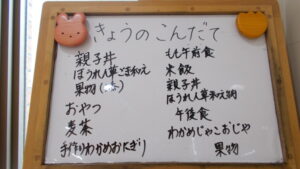 きょうのこんだて
親子丼
ほうれん草ごま和え
果物
おやつ
麦茶
手作りわかめおにぎり
もも午前食
米飯
親子丼
ほうれん草和え物
午後食
わかめじゃこおじや
果物